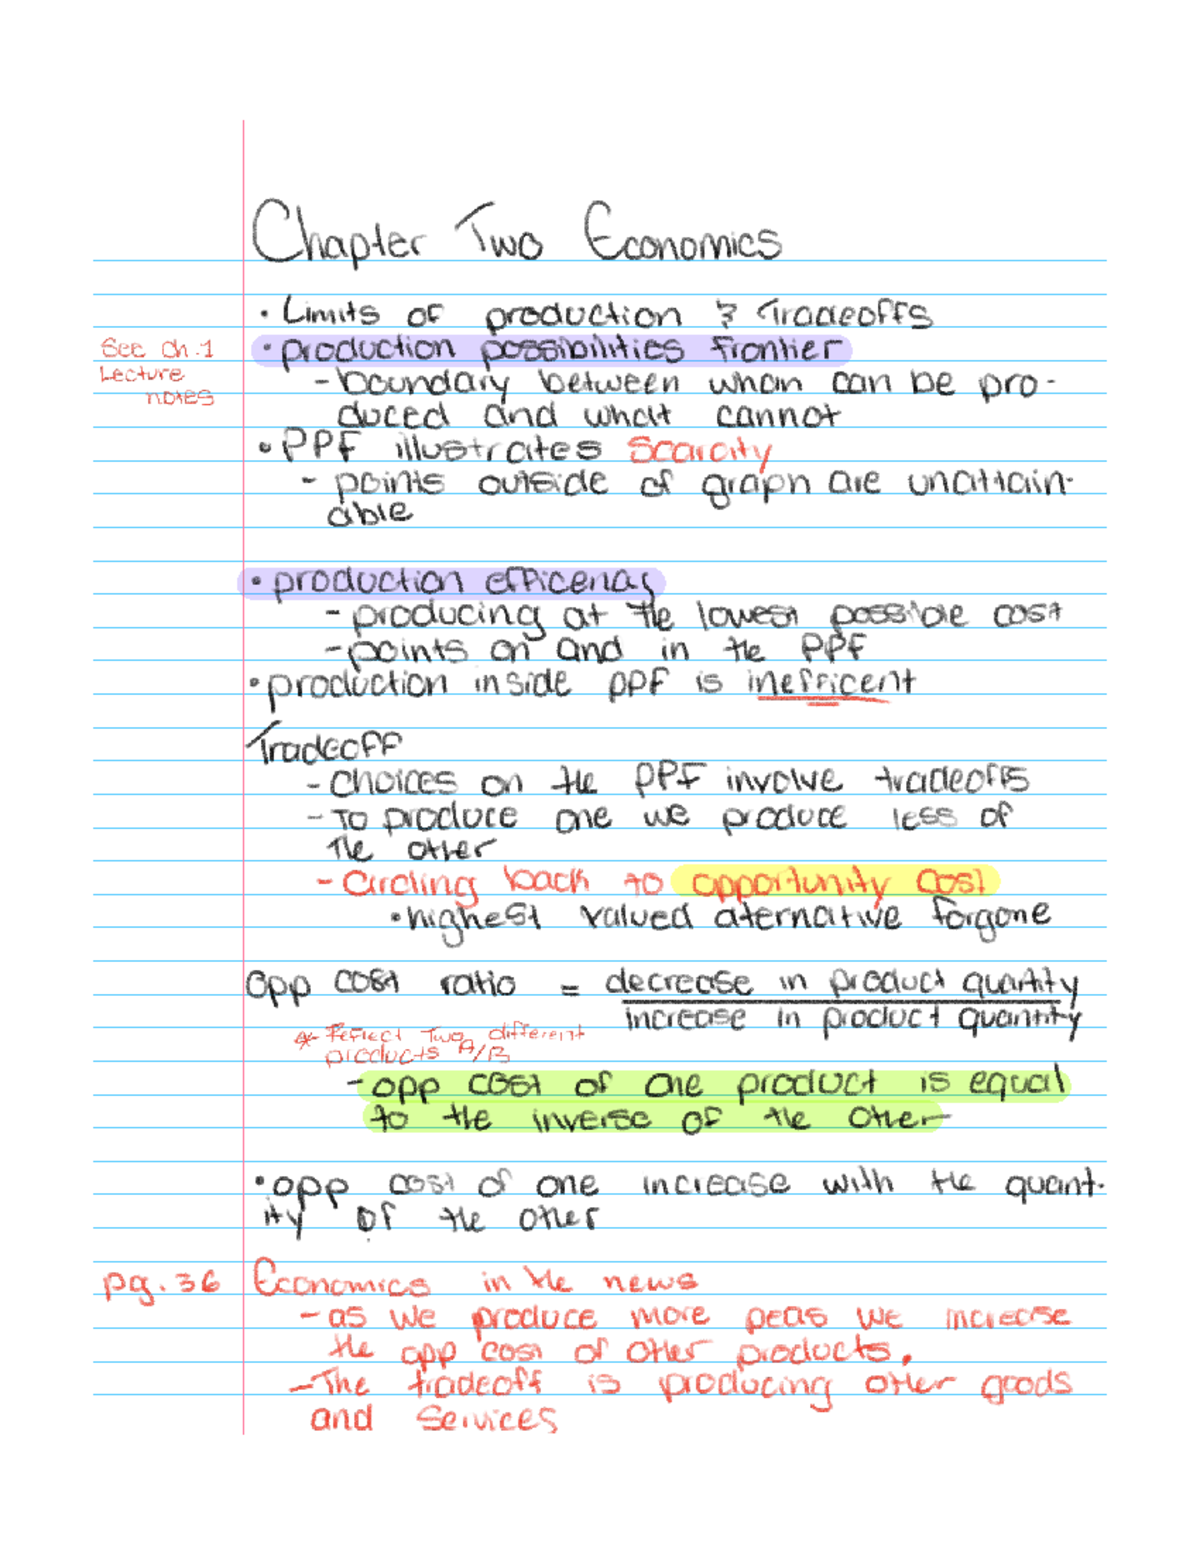 Chapter Two Economics
• Limits of production & Tradeoffs
See Ch.1
Lecture
notes
• production possibilities frontier
- boundary between what can be pro-
duced and what cannot
• PPF illustrates Scarcity
- points outside of graph are unattain-
able
• production efficency
- producing at the lowest possible cost
- points on and in the PPF
• production inside PPF is inefficent
Tradeoff
- Choices on the PPF involve tradeoffs
- To produce one we produce less of
the other
- Circling back to opportunity cost
• highest valued aternative forgone
Opp cost ratio = decrease in product quantity
increase in product quantity
* Reflect Two different
products A/B
- opp cost of one product is equal
to the inverse of the other
• opp cost of one increase with the quant-
ity of the other
pg. 36
Economics in the news
- as we produce more peas we increase
the opp cost of other products.
- The tradeoff is producing other goods
and services